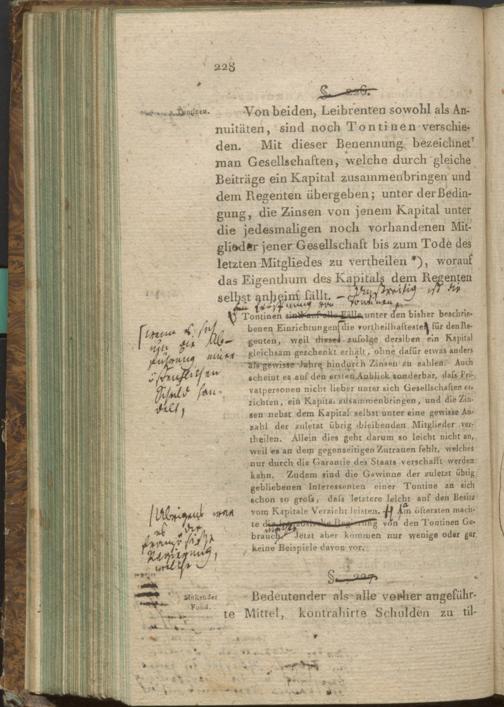 228
§. 226.
Tontinen.
Von beiden, Leibrenten sowohl als An-
nuitäten, sind noch Tontinen verschie-
den. Mit dieser Benennung bezeichnet
man Gesellschaften, welche durch gleiche
Beiträge ein Kapital zusammenbringen und
dem Regenten übergeben; unter der Bedin-
gung, die Zinsen von jenem Kapital unter
die jedesmaligen noch vorhandenen Mit-
glieder jener Gesellschaft bis zum Tode des
letzten Mitgliedes zu vertheilen *), worauf
das Eigenthum des Kapitals dem Regenten
selbst anheim fällt. — Unstreitig ist die
Eröffnung von Tontinen
Tontinen sind auf alle Fälle unter den bisher beschrie-
benen Einrichtungen die vortheilhafteste für den Re-
genten, weil dieses zufolge derselben ein Kapital
gleichsam geschenkt erhält, ohne dafür etwas anders
als gewisse Jahre hindurch Zinsen zu zahlen. Auch
scheint es auf den ersten Anblick sonderbar, daß Pri-
vatpersonen nicht lieber unter sich Gesellschaften er-
richten, ein Kapital zusammenbringen, und die Zin-
sen nebst dem Kapital selbst unter eine gewisse An-
zahl der zuletzt übrig bleibenden Mitglieder ver-
theilen. Allein dies geht darum so leicht nicht an,
weil es an dem gegenseitigen Zutrauen fehlt, welches
nur durch die Garantie des Staats verschafft werden
kann. Zudem sind die Gewinne der zuletzt übrig
gebliebenen Interessenten einer Tontine an sich
schon so groß, daß letztere leicht auf den Besitz
vom Kapitale Verzicht leisten. Am öftersten mach-
te die französische Regierung von den Tontinen Ge-
brauch. Jetzt aber kommen nur wenige oder gar
keine Beispiele davon vor.
wenn es sich
um die Ab-
führung einer
öffentlichen
Schuld han-
delt,
Übrigens war
es die
französische
Regierung,
welche
§. 227.
Sinkender
Fond.
Bedeutender als alle vorher angeführ-
te Mittel, kontrahirte Schulden zu til-